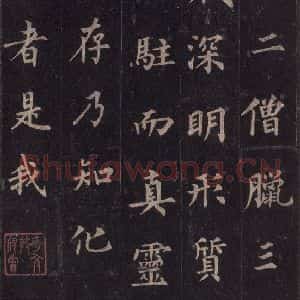 二僧臘三
深明形質
駐而真靈
存乃知化
者是我
Shufawang.CN